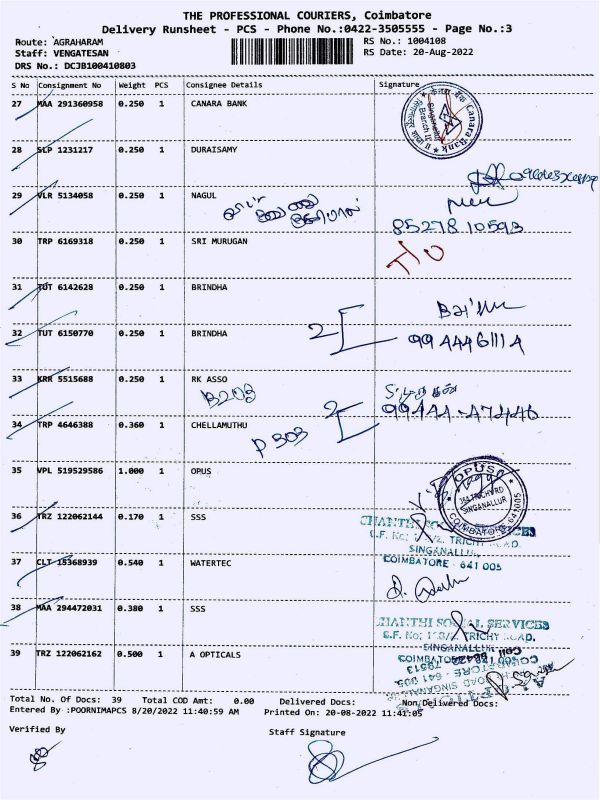 THE PROFESSIONAL COURIERS, Coimbatore
Delivery Runsheet - PCS - Phone No.:0422-3505555 - Page No.:3
Route: AGRAHARAM
Staff: VENGATESAN
DRS No.: DCJB100410803
RS No.: 1004108
RS Date: 20-Aug-2022
S No Consignment No Weight PCS Consignee Details Signature
27 MAA 291360958 0.250 1 CANARA BANK
Canara Bank
Singanallur
Branch II
28 SLP 1231217 0.250 1 DURAISAMY
29 VLR 5134058 0.250 1 NAGUL
85278 10593
30 TRP 6169318 0.250 1 SRI MURUGAN
31 TUT 6142628 0.250 1 BRINDHA
32 TUT 6150770 0.250 1 BRINDHA
2
9944461114
33 KRR 5515688 0.250 1 RK ASSO
B203
2
99444-47446
34 TRP 4646388 0.360 1 CHELLAMUTHU
D 303
35 VPL 519529586 1.000 1 OPUS
OPUS
TRICHY RD
SINGANALLUR
COIMBATORE 641005
36 TRZ 122062144 0.170 1 SSS
SINGANALLUR
COIMBATORE - 641 005
37 CLT 15368939 0.540 1 WATERTEC
38 MAA 294472031 0.380 1 SSS
SHANTHI SOCIAL SERVICES
TRICHY ROAD,
SINGANALLUR
39 TRZ 122062162 0.500 1 A OPTICALS
Total No. Of Docs: 39 Total COD Amt: 0.00 Delivered Docs: Non Delivered Docs:
Entered By :POORNIMAPCS 8/20/2022 11:40:59 AM Printed On: 20-08-2022 11:41:05
Verified By
Staff Signature